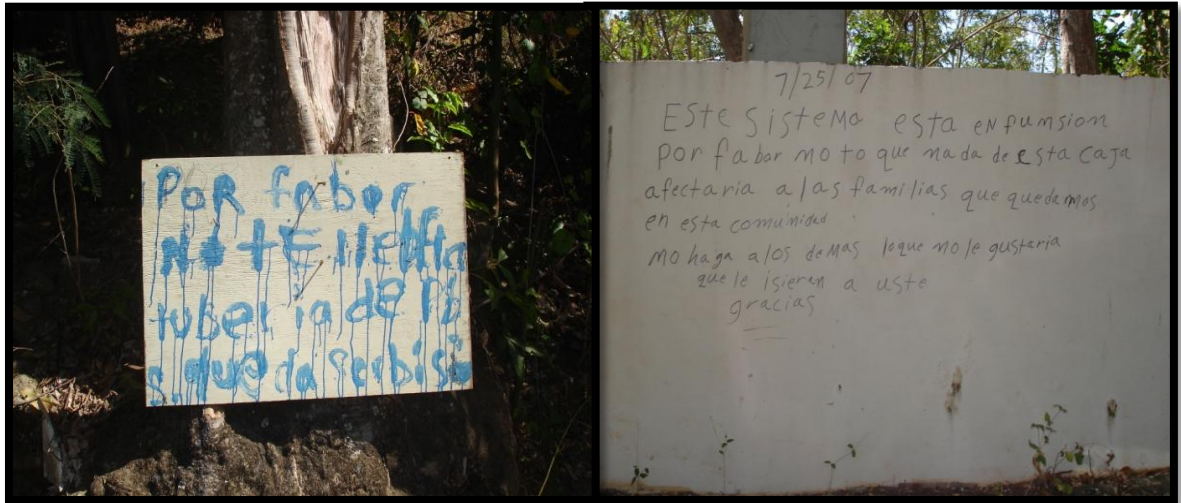 POR fabor
NO TE lleve la
tuberia de
s que da serbisio
7/25/07
ESte SisteMa esta eN funsion
por fabor no to que nada de esta caja
afectaria a las familias que quedamos
en esta comunidad
no haga alos demas loque no le gustaria
que le isieran a uste
gracias